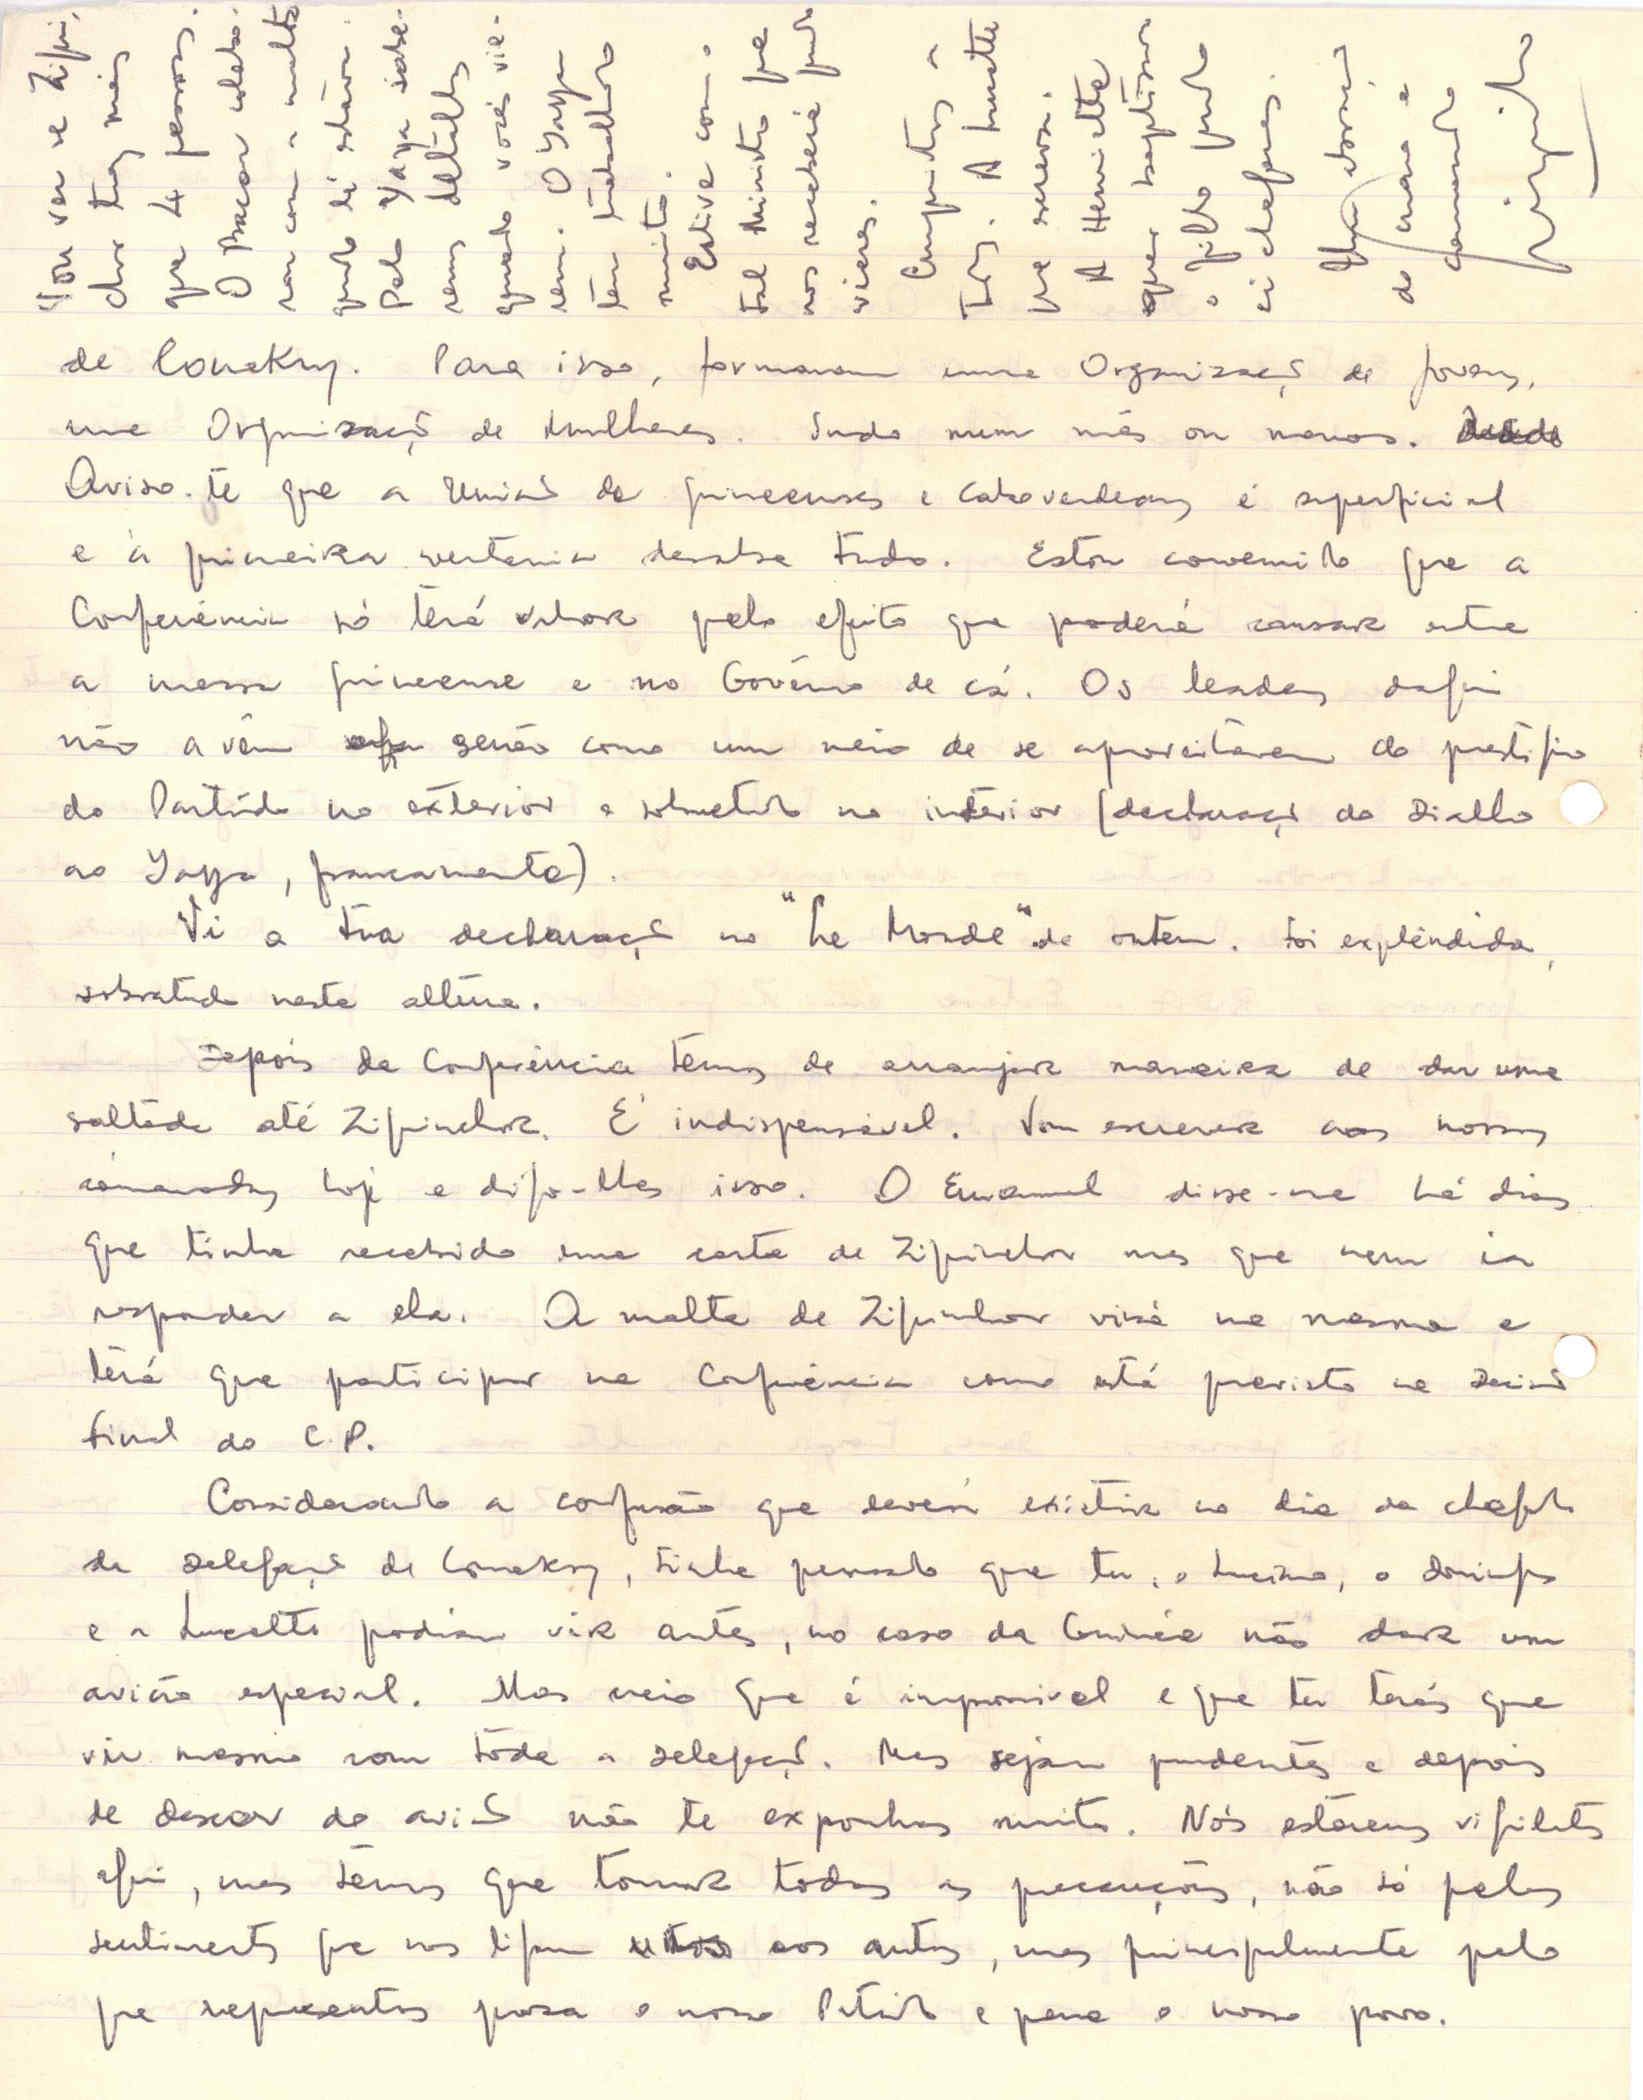 de Conakry. Para isso, formaram uma Organização de Jovens,
uma Organização de Mulheres. Tudo num mês ou menos.
Aviso-te que a União de guineenses e caboverdeanos é superficial
e à primeira ventania desaba tudo. Estou convencido que a
Conferência só terá valor pelo efeito que poderá causar entre
a massa guineense e no Govêrno de cá. Os leaders daqui
não a vêm senão como um meio de se aproveitarem do prestígio
do Partido no exterior e sobretudo no interior (declaração do Diallo
ao Yaya, francamente).
Vi a tua declaração no "Le Monde" de ontem. Foi explêndida,
sobretudo nesta altura.
Depois da Conferência temos de arranjar maneira de dar uma
saltada até Ziguinchor. É indispensável. Vou escrever aos nossos
camaradas hoje e digo-lhes isso. O Emanuel disse-me há dias
que tinha recebido uma carta de Ziguinchor mas que nem ia
responder a ela. A malta de Ziguinchor virá na mesma e
terá que participar na Conferência como está previsto na decisão
final do C.P.
Considerando a confusão que deverá existir no dia da chegada
da delegação de Conakry, tinha pensado que tu, o Luciano, o Domingos
e a Lucette podiam vir antes, no caso da Guinée não dar um
avião especial. Mas creio que é impossível e que tu terás que
vir mesmo com tôda a delegação. Mas sejam prudentes e depois
de descer do avião não te exponhas muito. Nós estaremos vigilantes
aqui, mas temos que tomar todas as precauções, não só pelos
sentimentos que nos ligam uns aos outros, mas principalmente pelo
que representas para o nosso Partido e para o nosso povo.
Vou ver se Ziguin-
chor traz mais
que 4 pessoas.
O Bacar colabo-
rou com a malta
quando lá estava.
Pelo Yaya sabe-
rems detalhes
quando vocês vie-
rem. O Yaya
tem trabalhado
muito.
Estive com o
tal Ministro que
nos receberá quando
vieres.
Cumprimentos a
todos. A Lucette
que escreva.
A Henriette
quer baptizar
o filho quando
ci chegares.
Um abraço
do mano e
camarada